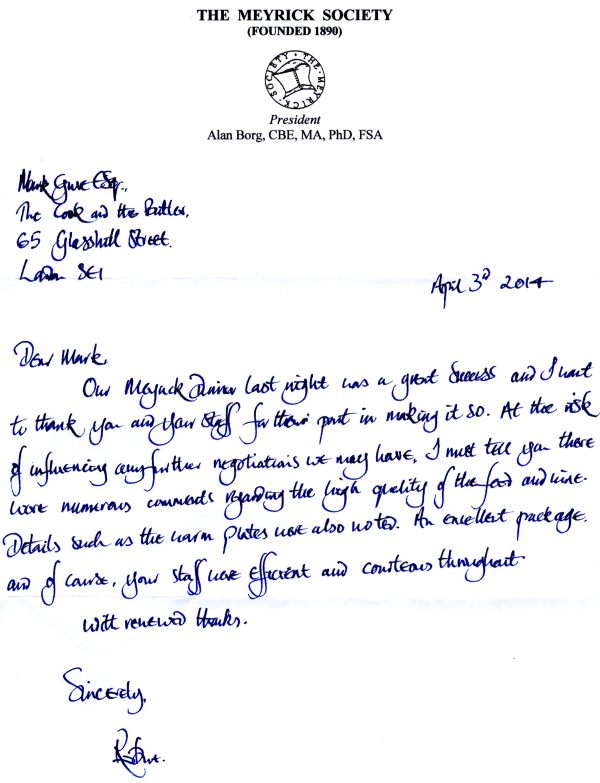 THE MEYRICK SOCIETY
(FOUNDED 1890)
SOCIETY · THE · MEYRICK
President
Alan Borg, CBE, MA, PhD, FSA
Mark Esq.,
The Cook and the Butler,
65 Glasshill Street.
London SE1
April 3rd 2014
Dear Mark,
Our Meyrick Dinner last night was a great success and I want
to thank you and your staff for their part in making it so. At the risk
of influencing any further negotiations we may have, I must tell you there
were numerous comments regarding the high quality of the food and wine.
Details such as the warm plates were also noted. An excellent package.
and of course, your staff were efficient and courteous throughout
With renewed thanks.
Sincerely,